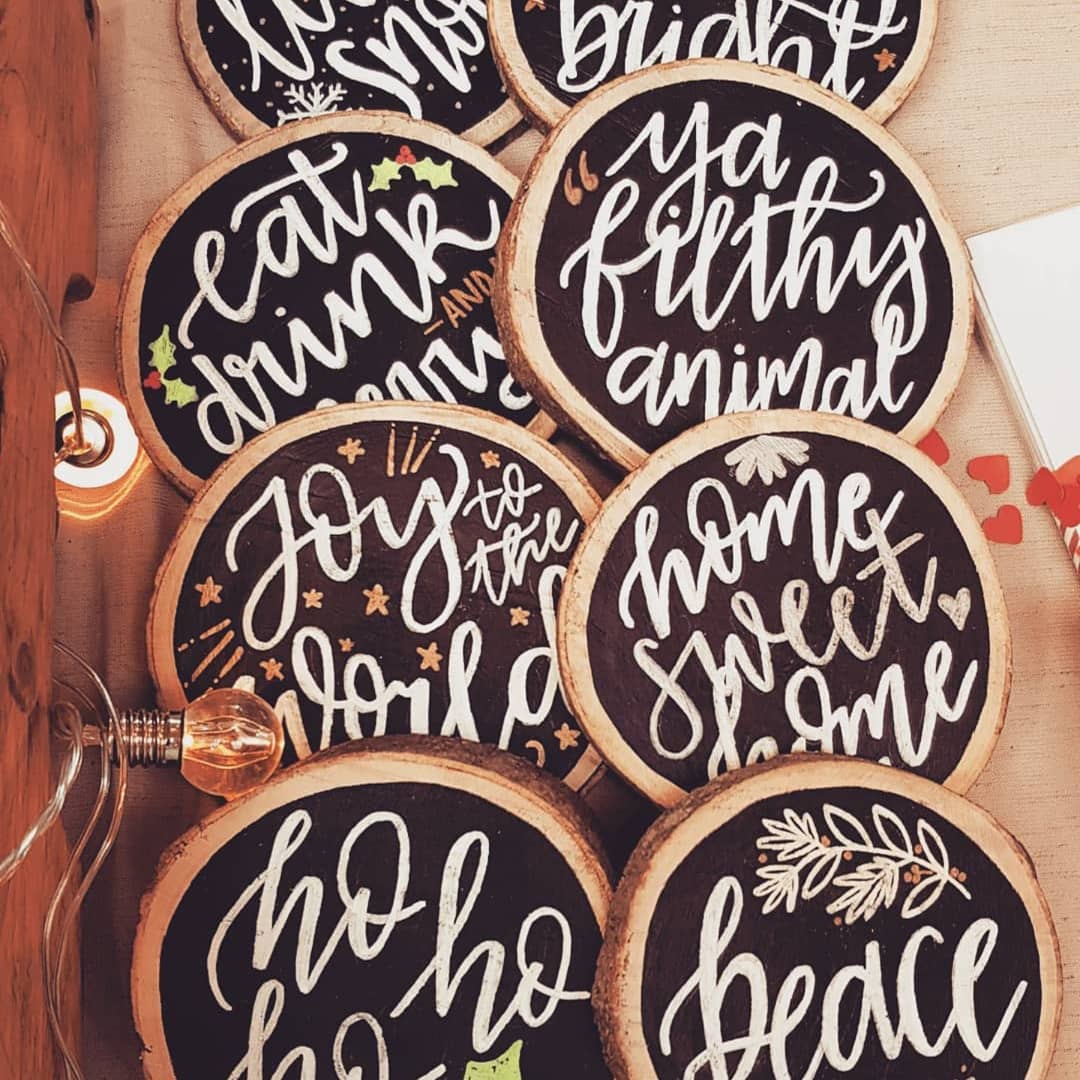 snow
bright
eat
drink
AND
merry
"ya
filthy
animal
Joy to
the
world
home
sweet
home
ho
ho
ho
peace